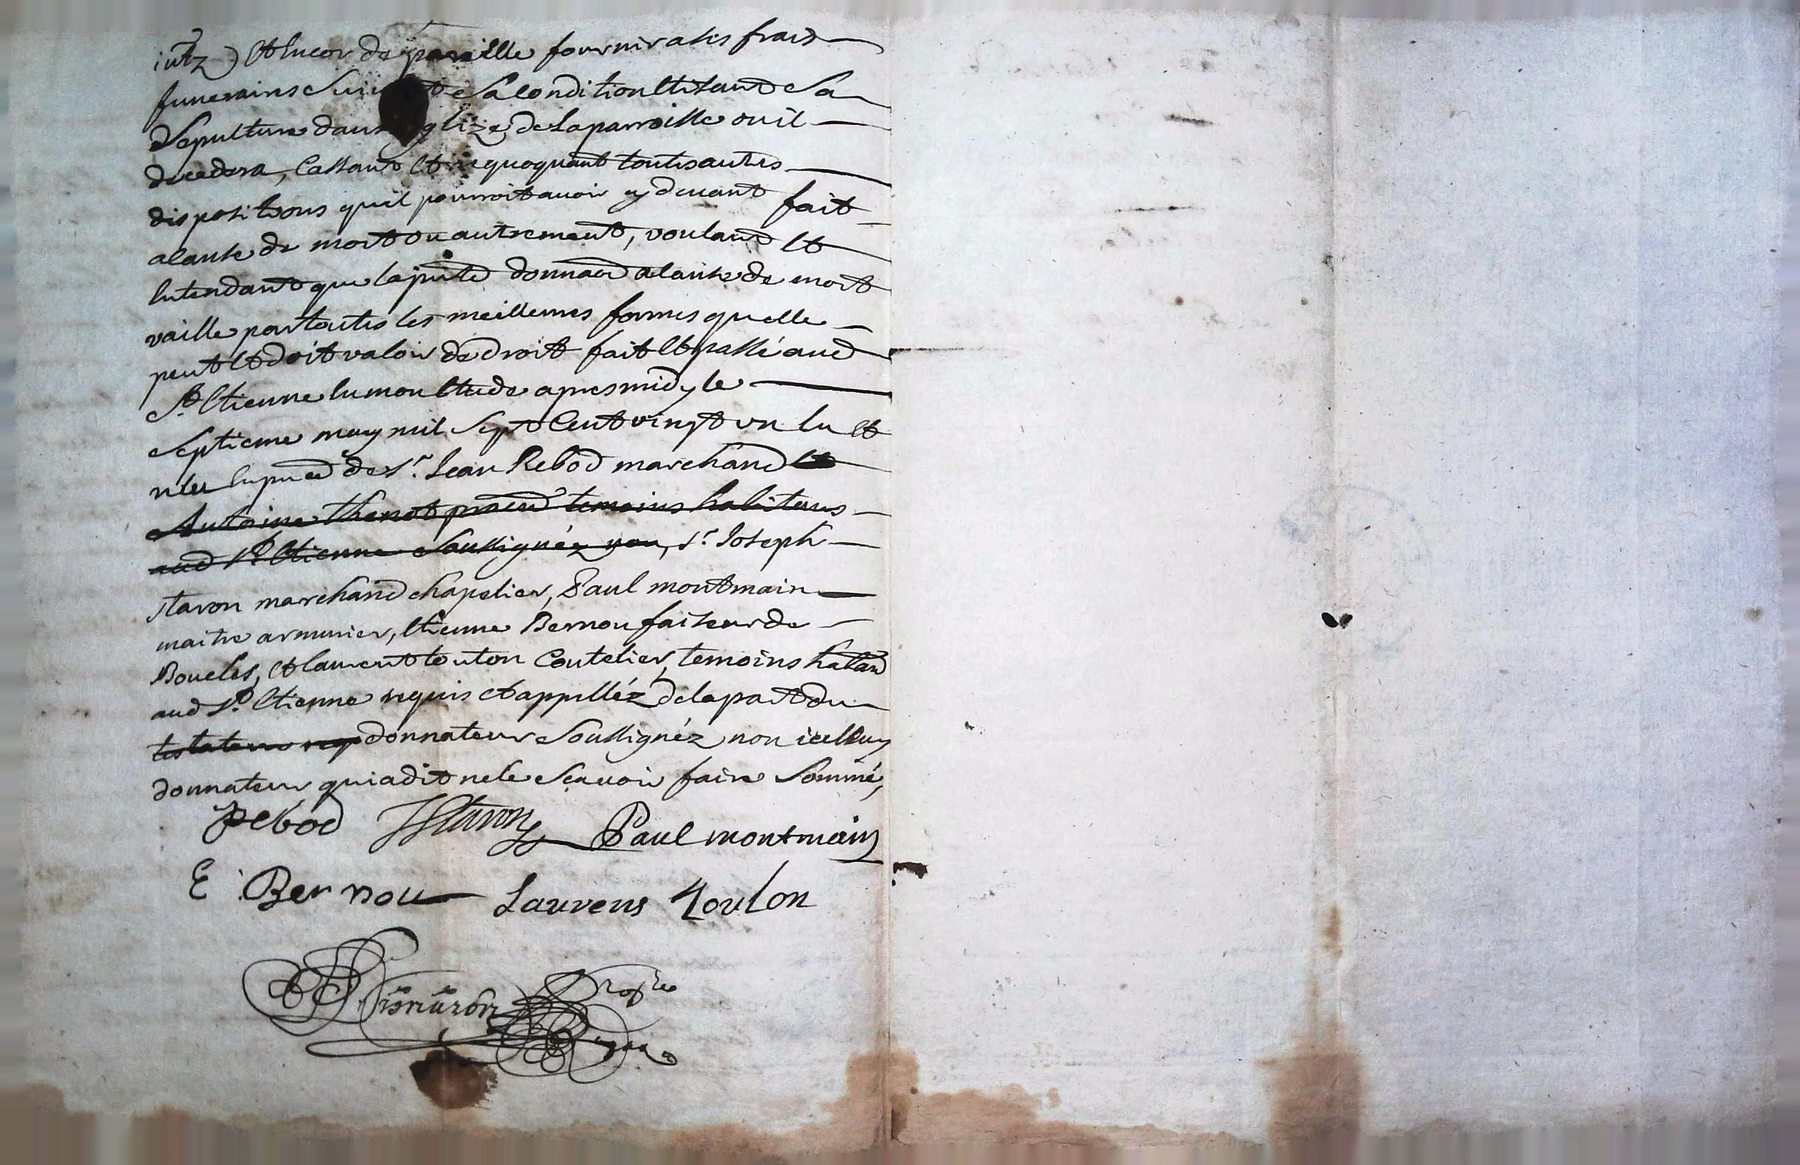 intz) Et encor de pareille fournir a ses frais
funerains suivant sa condition Et faut sa
sepulture dans Eglize de la parroisse ou il
decedera, Cassant Et revoquant touttes autres
dispositions qu'il pourroit avoir cy devant fait
a cause de mort ou autrement, voulant Et
Entendant que la pnte donnaon a cause de mort
vaille par touttes les meilleures formes quelle
peut Et doit valoir de droit fait Et passé aud
St Etienne Etude apres midy le
septieme may mil sept Cent vingt un lu Et
en pnce de Sr. Jean Rebod marchand Et
Antoine Thenot pratn temoins habitans
aud St Etienne soussignéz non, Sr Joseph
Staron marchand chapelier, Paul montmain
maitre armurier, Etienne Bernou faiseur de
Boucles, Et laurent toulon Coutelier, temoins habitans
aud St. Etienne requis et appelléz de la part du
testateur donnateur soussignéz non icelluy
donnateur qui a dit ne le sçavoir faire sommé,
Rebod JStaron Paul montmain
E Bernou Laurens Toulon